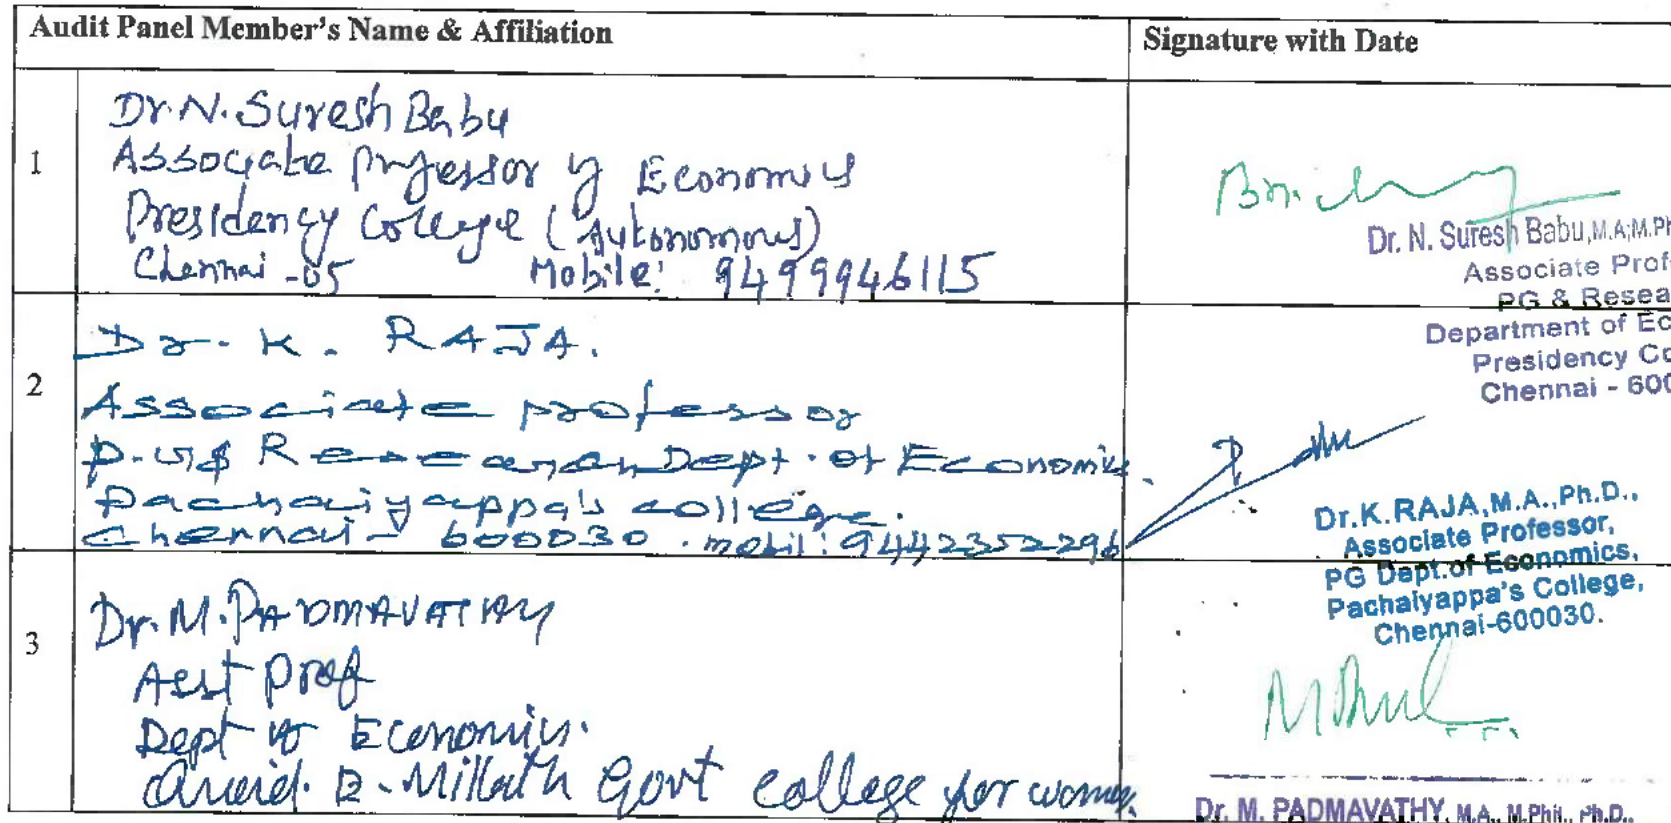 Audit Panel Member's Name & Affiliation
Signature with Date
1
Dr. N. Suresh Babu
Associate Professor of Economics
Presidency College (Autonomous)
Chennai -05 Mobile: 9499946115
Dr. N. Suresh Babu, M.A; M.Ph
Associate Prof
PG & Resea
Department of Ec
Presidency Co
Chennai - 600
2
Dr. K. RAJA.
Associate professor
P.G & Research Dept. of Economics.
Pachaiyappa's college.
Chennai - 600030. mobil: 9442352296
Dr.K.RAJA,M.A.,Ph.D.,
Associate Professor,
PG Dept.of Economics,
Pachaiyappa's College,
Chennai-600030.
3
Dr. M. PADMAVATHY
Asst Prof
Dept of Economics.
Quaid. E. Millath Govt college for women.
Dr. M. PADMAVATHY, M.A., M.Phil., Ph.D.,